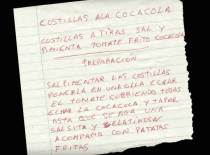 COSTILLAS ALA COCACOLA
COSTILLAS A TIRAS SAL Y
PIMIENTA TOMATE FRITO COCACOLA
PREPARACION
SALPIMENTAR LAS COSTILLAS
PONERLA EN UNA OLLA ECHAR
EL TOMATE CUBRIENDO TODAS
ECHAR LA COCACOLA Y TAPAR
ASTA QUE SE AGA UNA
SALSITA Y GELATINOSA
ACOMPAÑA CON PATATAS
FRITAS